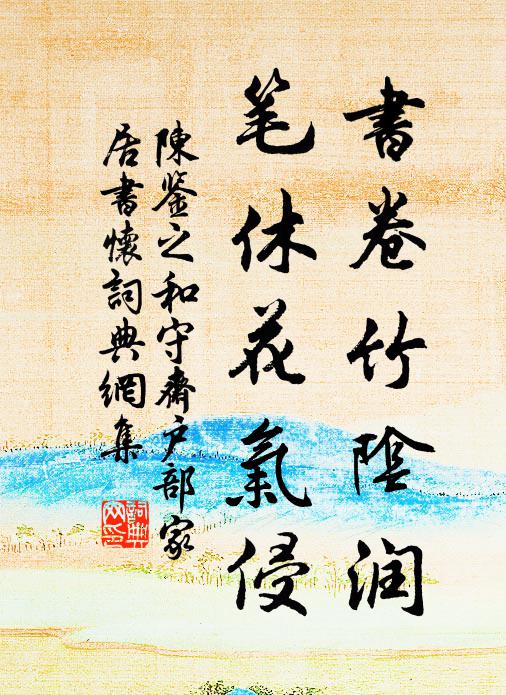 書卷竹陰润
笔休花氣侵
陳鉴之和守齋户部家
居書懷詞典網集